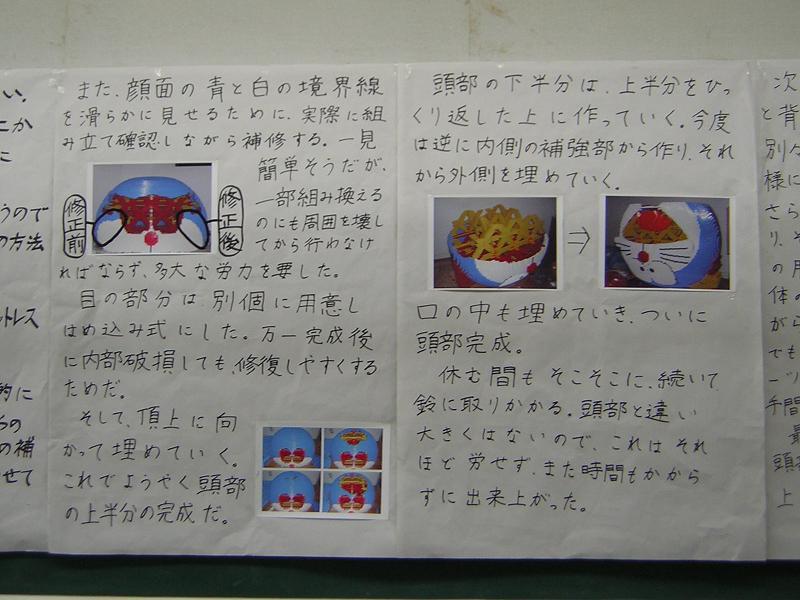 い、
に
うので
の方法
トレス
的に
の補
せて
また、顔面の青と白の境界線
を滑らかに見せるために、実際に組
み立て確認しながら補修する。一見
簡単そうだが、
一部組み換える
のにも周囲を壊し
てから行わなけ
修正前
修正後
ればならず、多大な労力を要した。
目の部分は別個に用意し
はめ込み式にした。万一完成後
に内部破損しても、修復しやすくする
ためだ。
そして、頂上に向
かって埋めていく。
これでようやく頭部
の上半分の完成だ。
頭部の下半分は、上半分をひっ
くり返した上に作っていく。今度
は逆に内側の補強部から作り、それ
から外側を埋めていく。
⇒
口の中も埋めていき、ついに
頭部完成。
休む間もそこそこに、続いて
鈴に取りかかる。頭部と違い
大きくはないので、これはそれ
ほど労せず、また時間もかから
ずに出来上がった。
次
と背
別々
様に
さら
り、そ
の用
体の
がら
でも
手間
最
頭
上